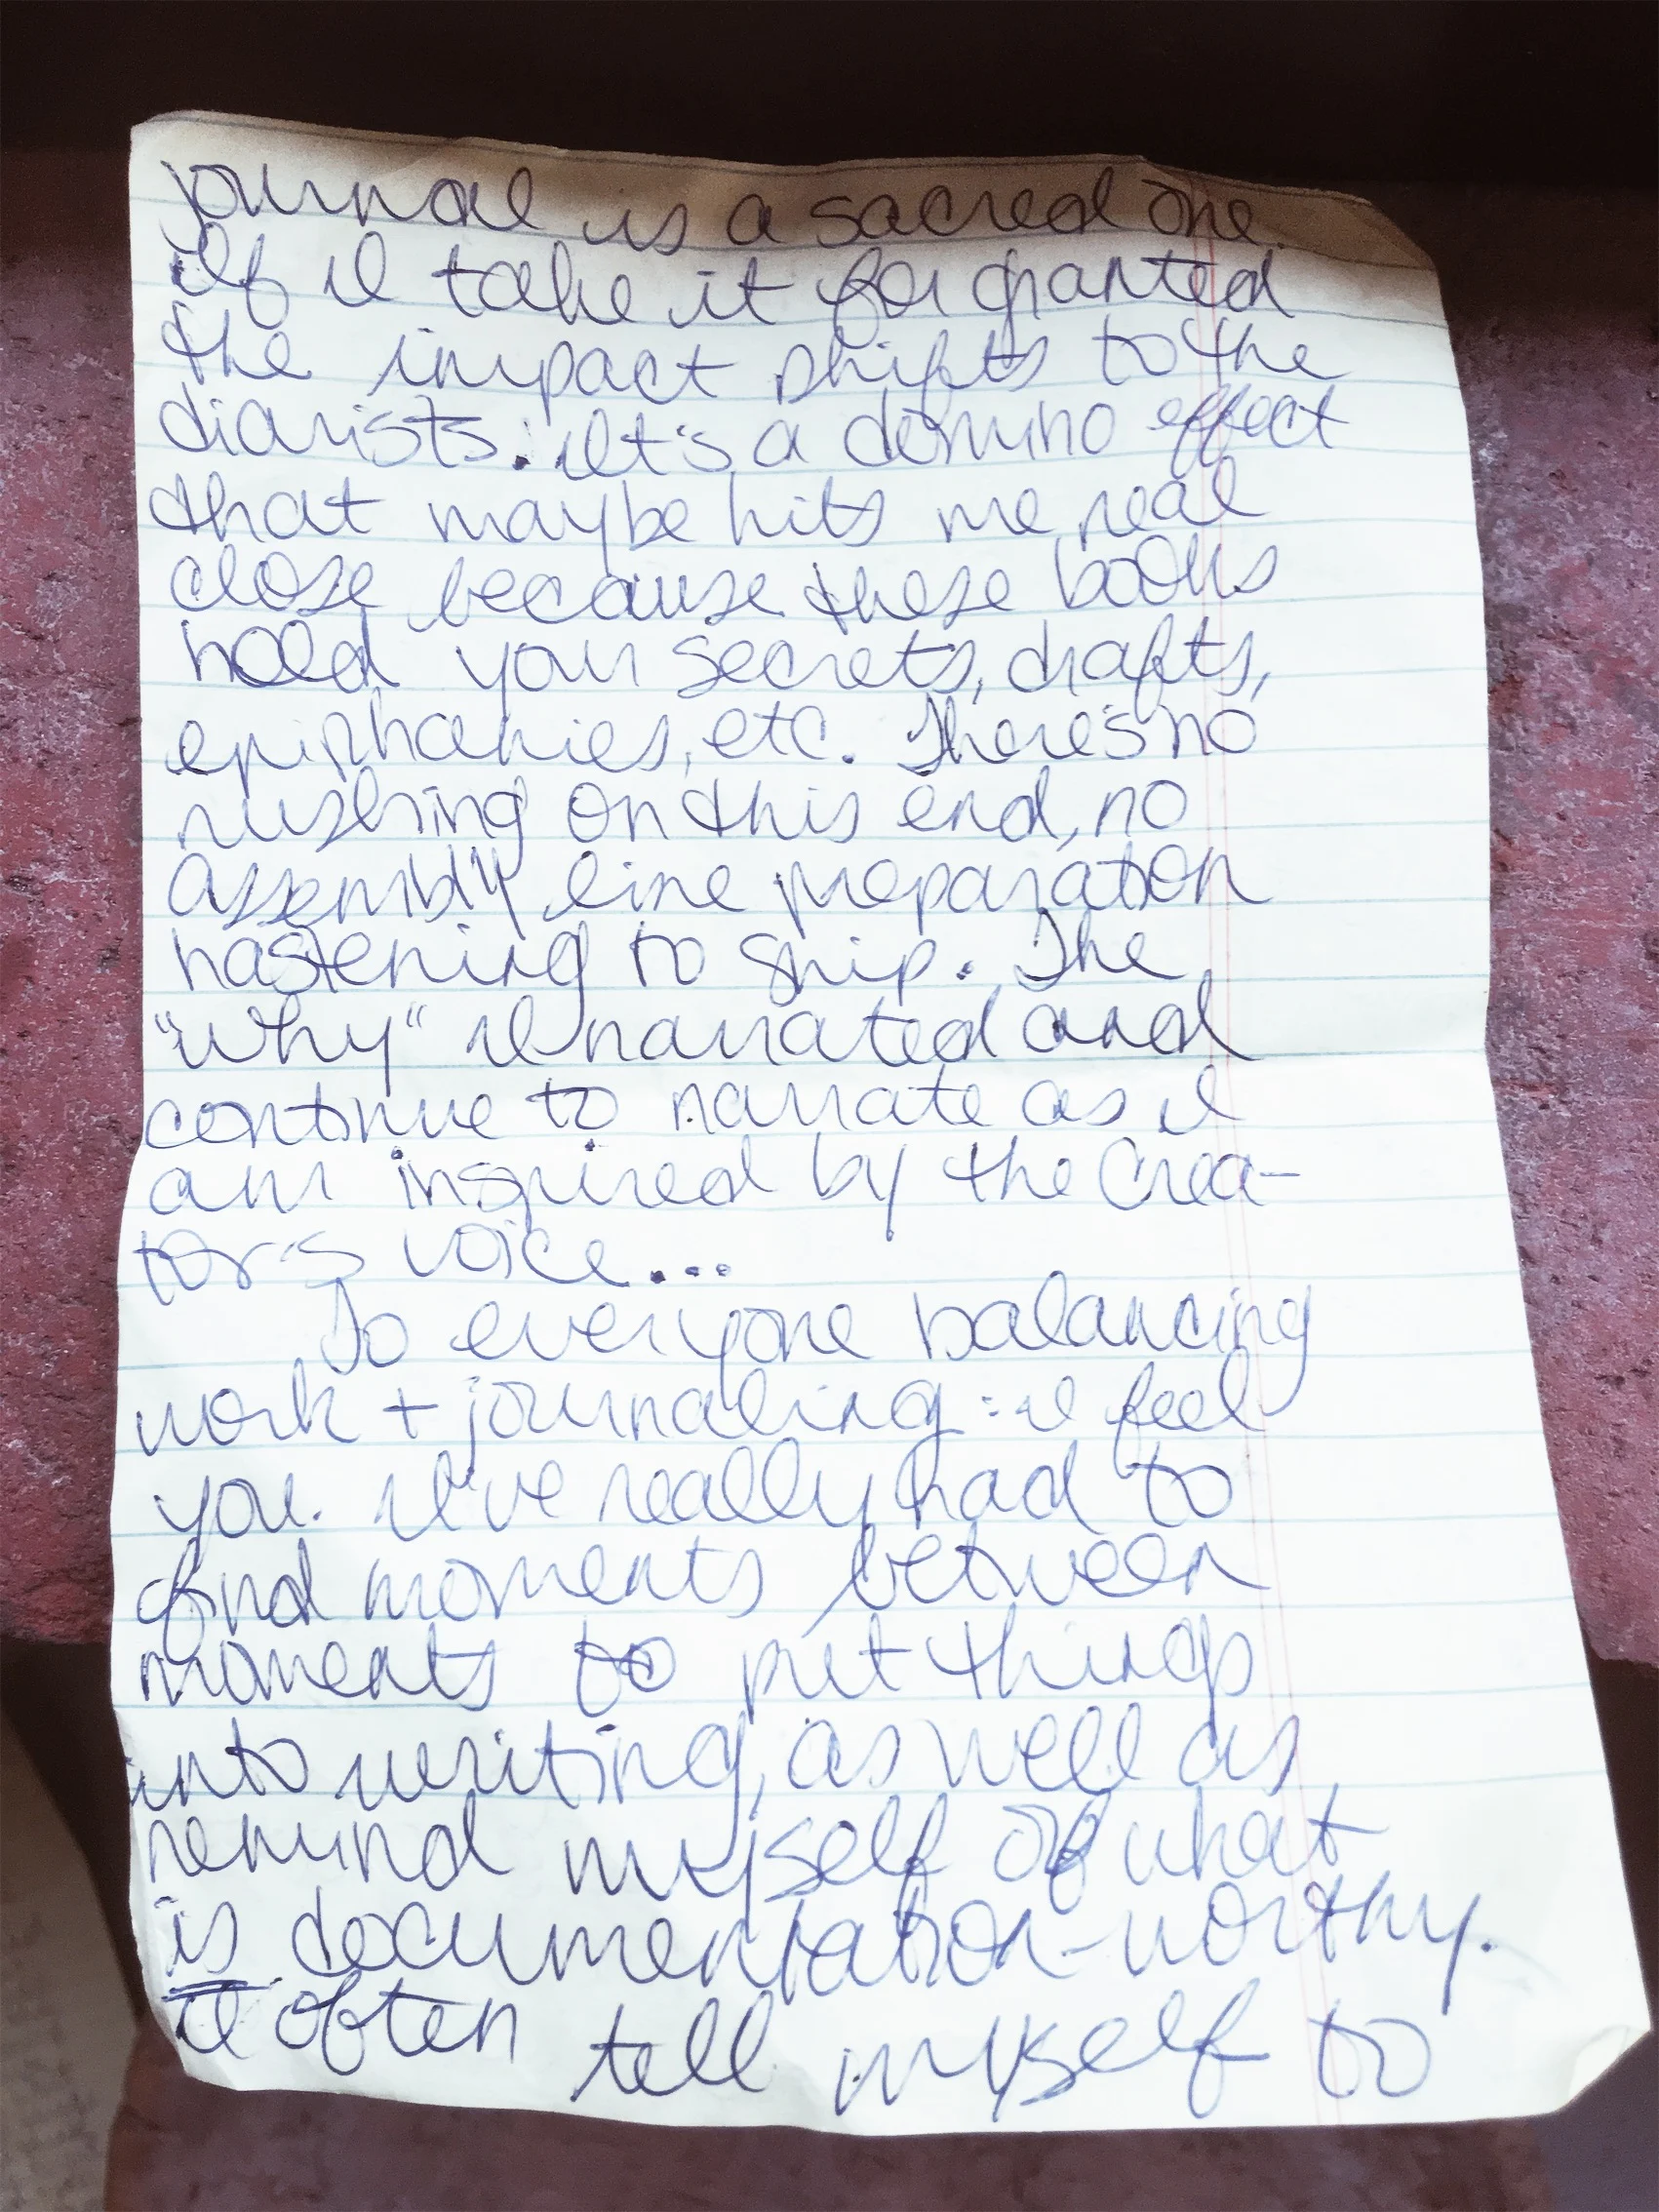 journal is a sacred one.
If I take it for granted
the impact shifts to the
diarists. It's a domino effect
that maybe hits me real
close because these books
hold your secrets, drafts,
epiphanies, etc. There's no
rushing on this end, no
assembly line preparation
hastening to ship. The
"why" I narrated and
continue to narrate as I
am inspired by the Crea-
tor's voice...
To everyone balancing
work + journaling: I feel
you. I've really had to
find moments between
moments to put things
into writing, as well as
remind myself of what
is documentation-worthy.
I often tell myself to